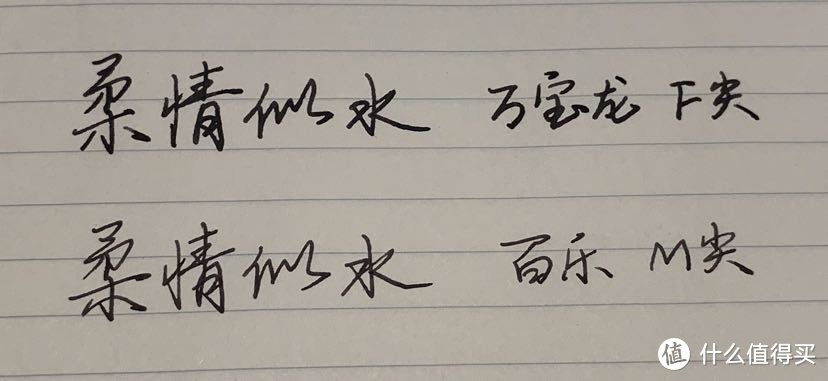 柔情似水 万宝龙 F尖
柔情似水 百乐 M尖
值 什么值得买